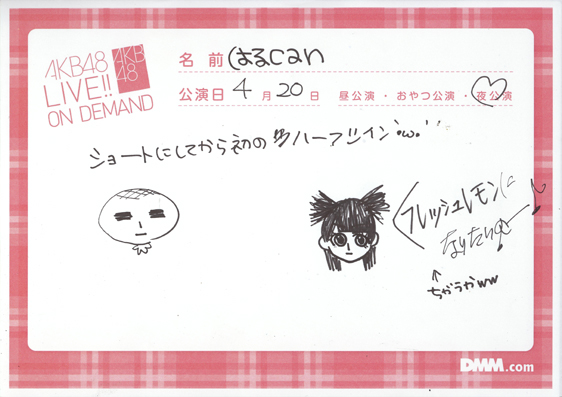 AKB48
LIVE!!
ON DEMAND
AKB
48
名 前 はるcan
公演日 4 月 20 日 昼公演・おやつ公演・夜公演
ショートにしてから初のハーフツイン
フレッシュレモンに
なりたいの
↑
ちがうかww
DMM.com